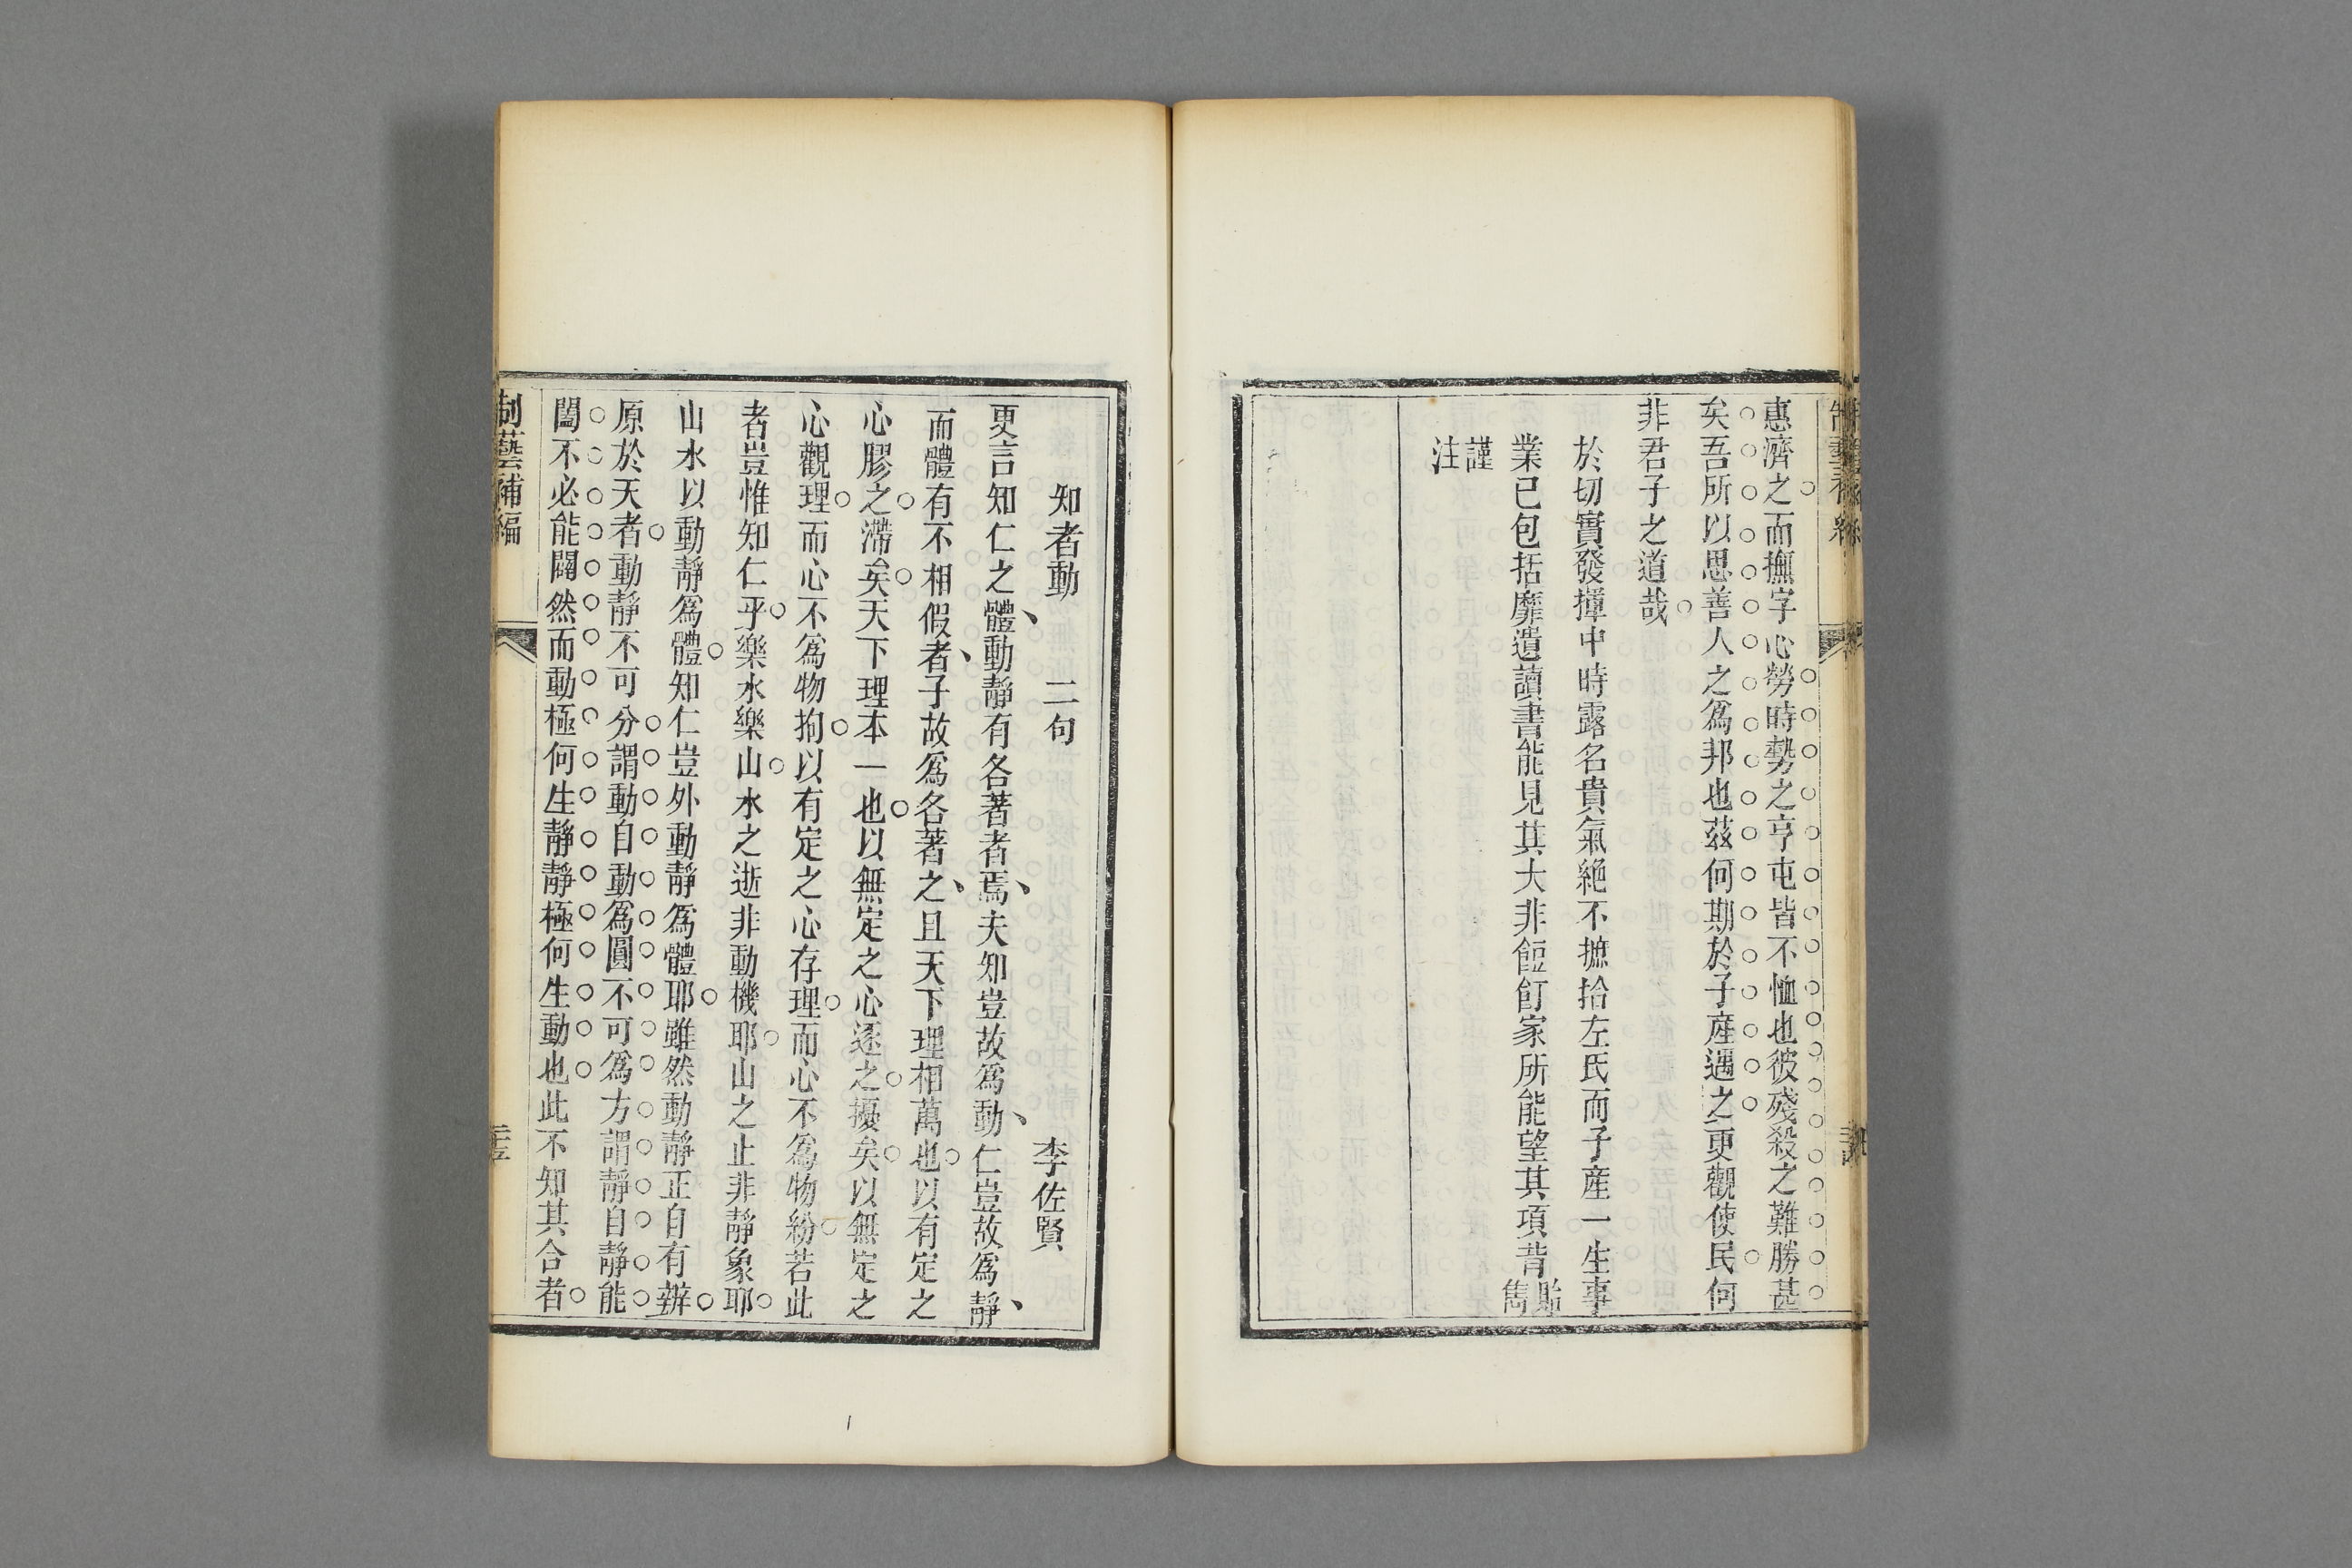 惠濟之而撫字心勞時勢之亨屯皆不恤也彼殘殺之難勝甚
矣吾所以思善人之為邦也茲何期於子產遇之更觀使民何
非君子之道哉
於切實發揮中時露名貴氣絕不摭拾左氏而子產一生事
業已包括靡遺讀書能見其大非餖飣家所能望其項背
雋
謹
注
知者動　二句　李佐賢
更言知仁之體動靜有各著者焉夫知豈故為動仁豈故為靜
而體有不相假者子故為各著之且天下理相萬也以有定之
心膠之滯矣天下理本一也以無定之心逐之擾矣以無定之
心觀理而心不為物拘以有定之心存理而心不為物紛若此
者豈惟知仁乎樂水樂山水之逝非動機耶山之止非靜象耶
山水以動靜為體知仁豈外動靜為體耶雖然動靜正自有辦
原於天者動靜不可分謂動自動為圓不可為方謂靜自靜能
闔不必能闢然而動極何生靜靜極何生動也此不知其合者
制藝補編